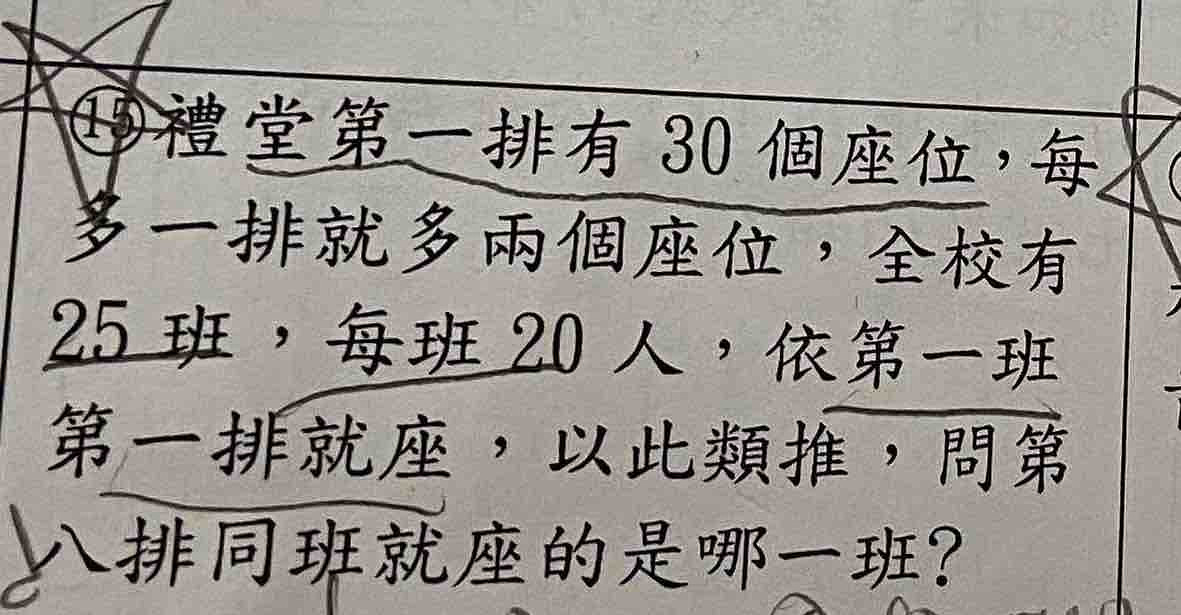 ⑮禮堂第一排有 30 個座位，每
多一排就多兩個座位，全校有
25 班，每班 20 人，依第一班
第一排就座，以此類推，問第
八排同班就座的是哪一班？